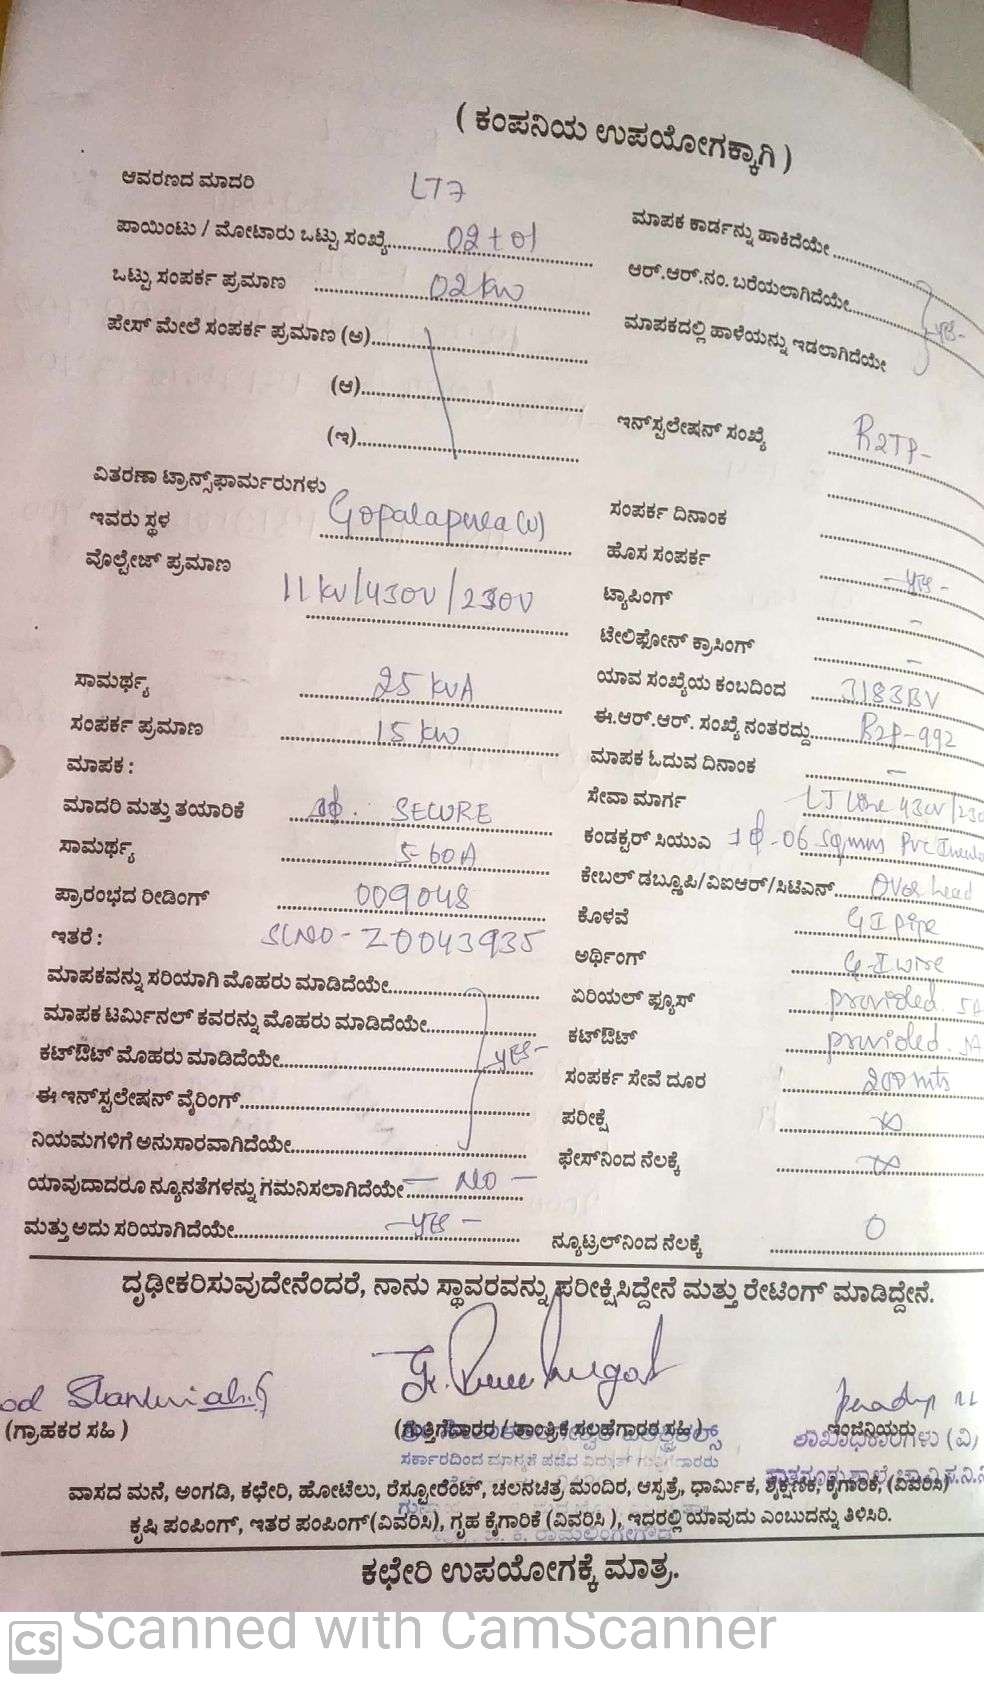 ( ಕಂಪನಿಯ ಉಪಯೋಗಕ್ಕಾಗಿ )
ಆವರಣದ ಮಾದರಿ LT7
ಪಾಯಿಂಟು / ಮೋಟಾರು ಒಟ್ಟು ಸಂಖ್ಯೆ 02 + 01
ಒಟ್ಟು ಸಂಪರ್ಕ ಪ್ರಮಾಣ 02 kw
ಪೇಸ್ ಮೇಲೆ ಸಂಪರ್ಕ ಪ್ರಮಾಣ (ಅ)
(ಆ)
(ಇ)
ವಿತರಣಾ ಟ್ರಾನ್ಸ್‌ಫಾರ್ಮರುಗಳು
ಇವರು ಸ್ಥಳ Gopalapura (v)
ವೊಲ್ಟೇಜ್ ಪ್ರಮಾಣ 11 kv/430V/230V
ಸಾಮರ್ಥ್ಯ 25 kvA
ಸಂಪರ್ಕ ಪ್ರಮಾಣ 15 kw
ಮಾಪಕ :
ಮಾದರಿ ಮತ್ತು ತಯಾರಿಕೆ 1φ. SECURE
ಸಾಮರ್ಥ್ಯ 5-60A
ಪ್ರಾರಂಭದ ರೀಡಿಂಗ್ 009048
ಇತರೆ : SLNO - Z0043935
ಮಾಪಕವನ್ನು ಸರಿಯಾಗಿ ಮೊಹರು ಮಾಡಿದೆಯೇ
ಮಾಪಕ ಟರ್ಮಿನಲ್ ಕವರನ್ನು ಮೊಹರು ಮಾಡಿದೆಯೇ
ಕಟ್‌ಔಟ್ ಮೊಹರು ಮಾಡಿದೆಯೇ yes-
ಈ ಇನ್‌ಸ್ಟಲೇಷನ್ ವೈರಿಂಗ್
ನಿಯಮಗಳಿಗೆ ಅನುಸಾರವಾಗಿದೆಯೇ
ಯಾವುದಾದರೂ ನ್ಯೂನತೆಗಳನ್ನು ಗಮನಿಸಲಾಗಿದೆಯೇ - NO -
ಮತ್ತು ಅದು ಸರಿಯಾಗಿದೆಯೇ -yes-
ಮಾಪಕ ಕಾರ್ಡನ್ನು ಹಾಕಿದೆಯೇ
ಆರ್.ಆರ್.ನಂ. ಬರೆಯಲಾಗಿದೆಯೇ yes-
ಮಾಪಕದಲ್ಲಿ ಹಾಳೆಯನ್ನು ಇಡಲಾಗಿದೆಯೇ
ಇನ್‌ಸ್ಟಲೇಷನ್ ಸಂಖ್ಯೆ R2TP-
ಸಂಪರ್ಕ ದಿನಾಂಕ
ಹೊಸ ಸಂಪರ್ಕ -yes-
ಟ್ಯಾಪಿಂಗ್ -
ಟೇಲಿಫೋನ್ ಕ್ರಾಸಿಂಗ್ -
ಯಾವ ಸಂಖ್ಯೆಯ ಕಂಬದಿಂದ 3183BV
ಈ.ಆರ್.ಆರ್. ಸಂಖ್ಯೆ ನಂತರದ್ದು R2P-992
ಮಾಪಕ ಓದುವ ದಿನಾಂಕ -
ಸೇವಾ ಮಾರ್ಗ LT line 430V/230
ಕಂಡಕ್ಟರ್ ಸಿಯುಎ 1φ-06 sqmm Pvc
ಕೇಬಲ್ ಡಬ್ಲೂಪಿ/ವಿಐಆರ್/ಸಿಟಿಎಸ್ Over head
ಕೊಳವೆ G I pipe
ಅರ್ಥಿಂಗ್ G-I wire
ಏರಿಯಲ್ ಫ್ಯೂಸ್ provided.
ಕಟ್‌ಔಟ್ provided.
ಸಂಪರ್ಕ ಸೇವೆ ದೂರ 200 mts
ಪರೀಕ್ಷೆ ∞
ಫೇಸ್‌ನಿಂದ ನೆಲಕ್ಕೆ ∞
ನ್ಯೂಟ್ರಲ್‌ನಿಂದ ನೆಲಕ್ಕೆ 0
ದೃಢೀಕರಿಸುವುದೇನೆಂದರೆ, ನಾನು ಸ್ಥಾವರವನ್ನು ಪರೀಕ್ಷಿಸಿದ್ದೇನೆ ಮತ್ತು ರೇಟಿಂಗ್ ಮಾಡಿದ್ದೇನೆ.
(ಗ್ರಾಹಕರ ಸಹಿ )
(ಗುತ್ತಿಗೆದಾರರ / ತಾಂತ್ರಿಕ ಸಲಹೆಗಾರರ ಸಹಿ )
ಇಂಜಿನಿಯರು
ಶಾಖಾಧಿಕಾರಿಗಳು (ವಿ)
ಸರ್ಕಾರದಿಂದ ಮಾನ್ಯತೆ ಪಡೆದ ವಿದ್ಯುತ್ ಗುತ್ತಿಗೆದಾರರು
ವಾಸದ ಮನೆ, ಅಂಗಡಿ, ಕಛೇರಿ, ಹೋಟೆಲು, ರೆಸ್ಟೋರೆಂಟ್, ಚಲನಚಿತ್ರ ಮಂದಿರ, ಆಸ್ಪತ್ರೆ, ಧಾರ್ಮಿಕ, ಶೈಕ್ಷಣಿಕ, ಕೈಗಾರಿಕೆ, (ವಿವರಿಸಿ)
ಕೃಷಿ ಪಂಪಿಂಗ್, ಇತರ ಪಂಪಿಂಗ್ (ವಿವರಿಸಿ), ಗೃಹ ಕೈಗಾರಿಕೆ (ವಿವರಿಸಿ ), ಇದರಲ್ಲಿ ಯಾವುದು ಎಂಬುದನ್ನು ತಿಳಿಸಿರಿ.
ಕಛೇರಿ ಉಪಯೋಗಕ್ಕೆ ಮಾತ್ರ.
CS Scanned with CamScanner